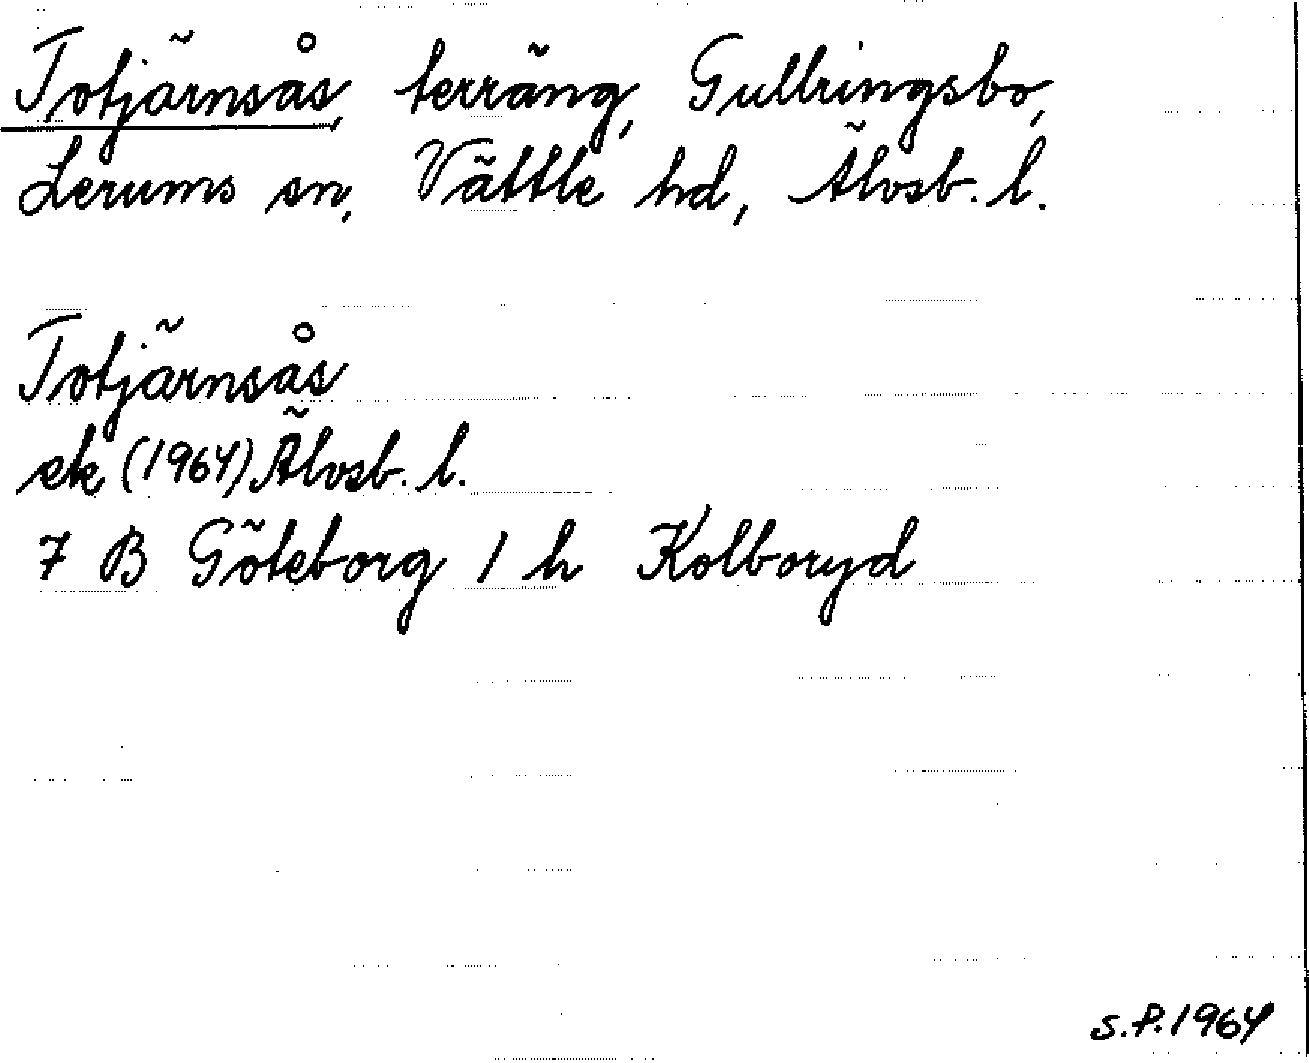 Totjärnsås, terräng, Gullringsbo,
Lerums sn, Vättle hd, Älvsb. l.
Totjärnsås
ek (1964) Älvsb. l.
7 B Göteborg 1 h Kolboryd
S.P. 1964